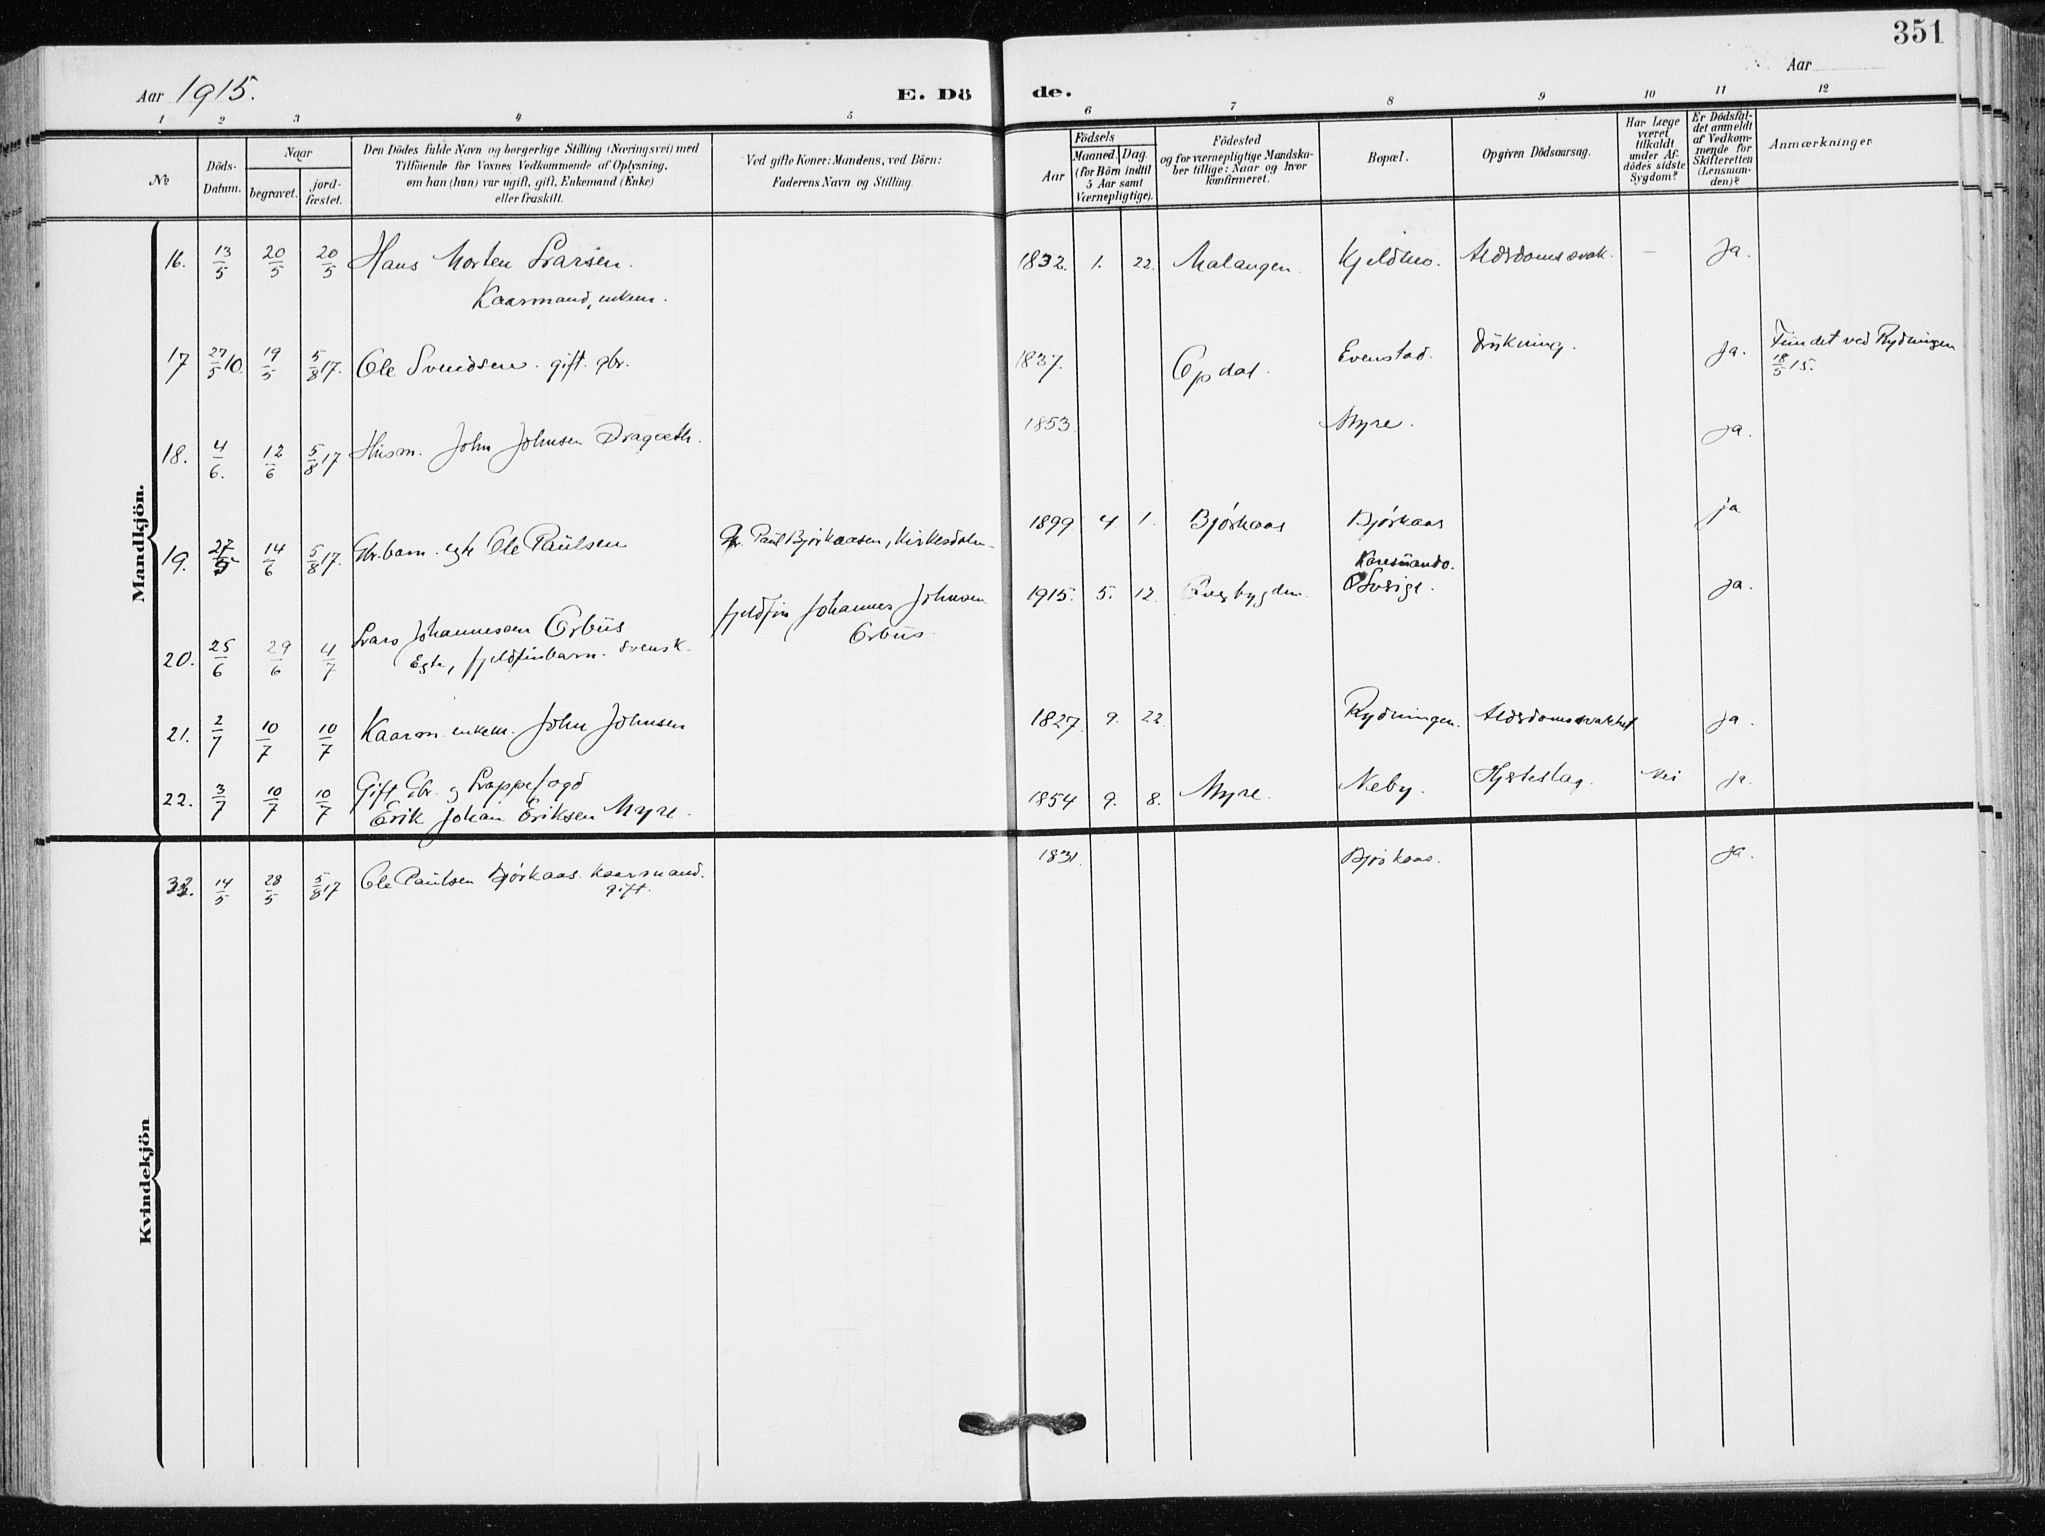 351
Aar 1915.
E. Dö de.
Aar
1 2 3 4 5 6 7 8 9 10 11 12
No
Döds-
Datum.
Naar
begravet.
jord-
fæstet.
Den Dödes fulde Navn og borgerlige Stilling (Næringsvei) med
Tilföiende for Voxnes Vedkommende af Oplysning,
om han (hun) var ugift, gift, Enkemand (Enke)
eller fraskilt.
Ved gifte Koner: Mandens, ved Börn:
Faderens Navn og Stilling.
Födsels
Aar
Maaned. Dag.
(for Börn indtil
5 Aar samt
Værnepligtige).
Födested
og for værnepligtige Mandska-
ber tillige: Naar og hvor
konfirmeret.
Bopæl.
Opgiven Dödsaarsag.
Har Læge
været
tilkaldt
under Af-
dödes sidste
Sygdom?
Er Dödsfal-
det anmeldt
af Vedkom-
mende for
Skifteretten
(Lensman-
den)?
Anmærkninger
Mandkjön.
16. 13/5 20/5 20/5 Hans Morten Larsen. 1832. 1. 22. Malangen. Kjeldmo. Alderdomssvak. — Ja.
Kaarmand, enkem.
17 27/5 10. 19/5 5/8 17. Ole Svendsen. gift. gbr. 1837. Opdal. Evenstad. Drukning. Ja. Fundet ved Rydningen
18/5 15.
18. 4/6. 12/6 5/8 17 Husm. John Johnsen Drageeth. 1853. Myre. ja.
19. 27/5 14/6 5/8 17. Gbr.barn. egte Ole Paulsen Gbr. Paul Bjørkaasen, Kirkesdalen 1899 4 1. Bjørkaas Bjørkaas ja
20. 25/6 29/6 4/7 Lars Johannessen Orbus fjeldfin Johannes Johnsen 1915. 5. 12. Øverbygden. Karesuando. ja.
Egte, fjeldfinbarn. svensk. Orbus Sverige.
21. 2/7 10/7 10/7 Kaarm. enkem. John Johnsen 1827. 9. 22. Rydningen. Alderdomssvakhet ja.
22. 3/7 10/7 10/7 Gift Gbr. og Lappefogd 1854 9. 8. Myre. Neby. Hjerteslag. Nei ja.
Erik Johan Eriksen Myre.
Kvindekjön
14/5 28/5 5/8 17 Ole Paulsen Bjørkaas. Kaarmand. 1831. Bjørkaas. ja.
gift.